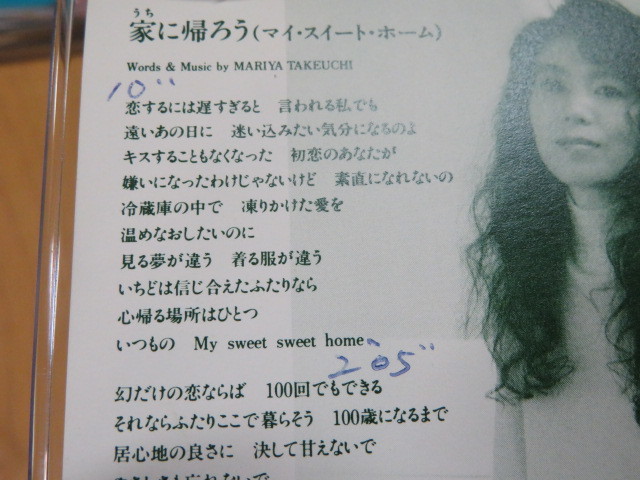 うち
家に帰ろう(マイ・スイート・ホーム)
Words & Music by MARIYA TAKEUCHI
10''
恋するには遅すぎると 言われる私でも
遠いあの日に 迷い込みたい気分になるのよ
キスすることもなくなった 初恋のあなたが
嫌いになったわけじゃないけど 素直になれないの
冷蔵庫の中で 凍りかけた愛を
温めなおしたいのに
見る夢が違う 着る服が違う
いちどは信じ合えたふたりなら
心帰る場所はひとつ
いつもの My sweet sweet home
2'05''
幻だけの恋ならば 100回でもできる
それならふたりここで暮らそう 100歳になるまで
居心地の良さに 決して甘えないで